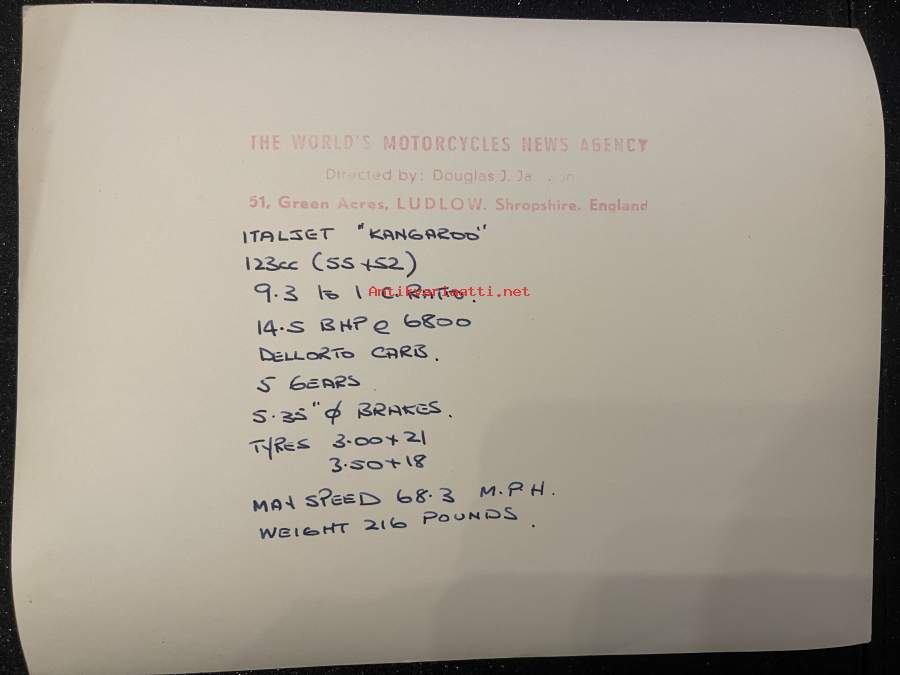 THE WORLD'S MOTORCYCLES NEWS AGENCY
Directed by: Douglas J.
51, Green Acres, LUDLOW. Shropshire. England
ITALJET "KANGAROO"
123cc (55+52)
9.3 to 1 C. RATIO.
Antikvariaatti.net
14.5 BHP @ 6800
DELLORTO CARB.
5 GEARS
5.35" ϕ BRAKES.
TYRES 3.00+21
3.50+18
MAX SPEED 68.3 M.P.H.
WEIGHT 216 POUNDS.